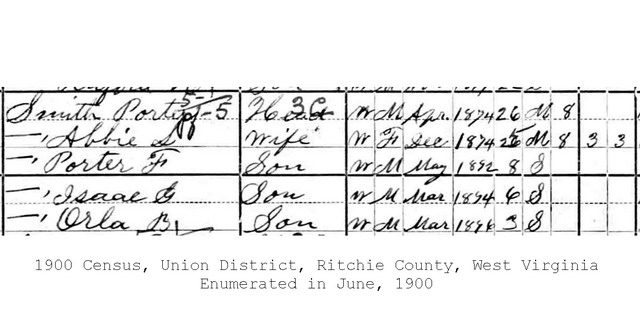 Smith Porty 5-5 Head W M Apr 1874 26 M 8
—, Abbie S Wife W F Dec 1874 25 M 8 3 3
—, Porter F Son W M May 1892 8 S
—, Isaac G Son W M Mar 1894 6 S
—, Orla B Son W M Mar 3 S
1900 Census, Union District, Ritchie County, West Virginia
Enumerated in June, 1900